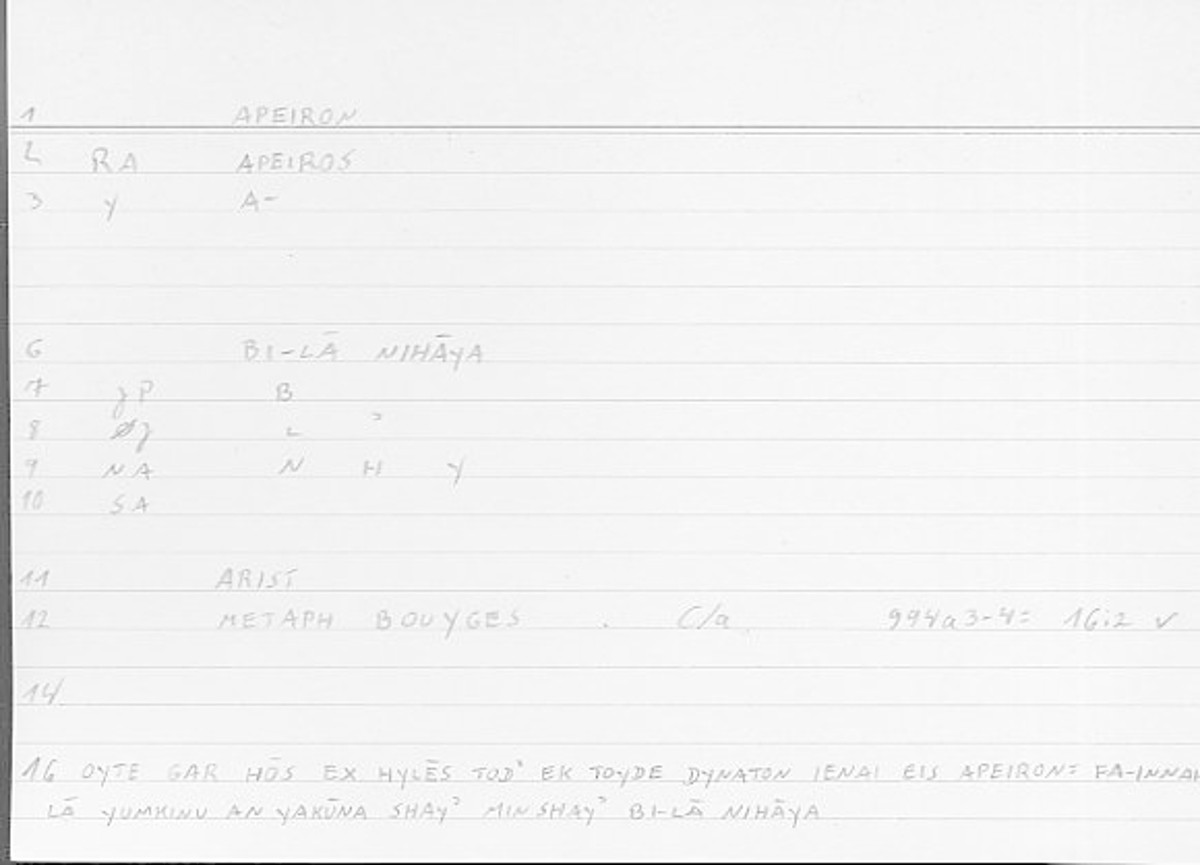 1 APEIRON
2 RA APEIROS
3 Y A-
6 BI-LĀ NIHĀYA
7 JP B
8 ØJ L ʾ
9 NA N H Y
10 SA
11 ARIST
12 METAPH BOUYGES . C/a 994a3-4= 16:2 ✓
14
16 OYTE GAR HŌS EX HYLĒS TOD' EK TOYDE DYNATON IENAI EIS APEIRON= FA-INNAH
LĀ YUMKINU AN YAKŪNA SHAYʾ MIN SHAYʾ BI-LĀ NIHĀYA